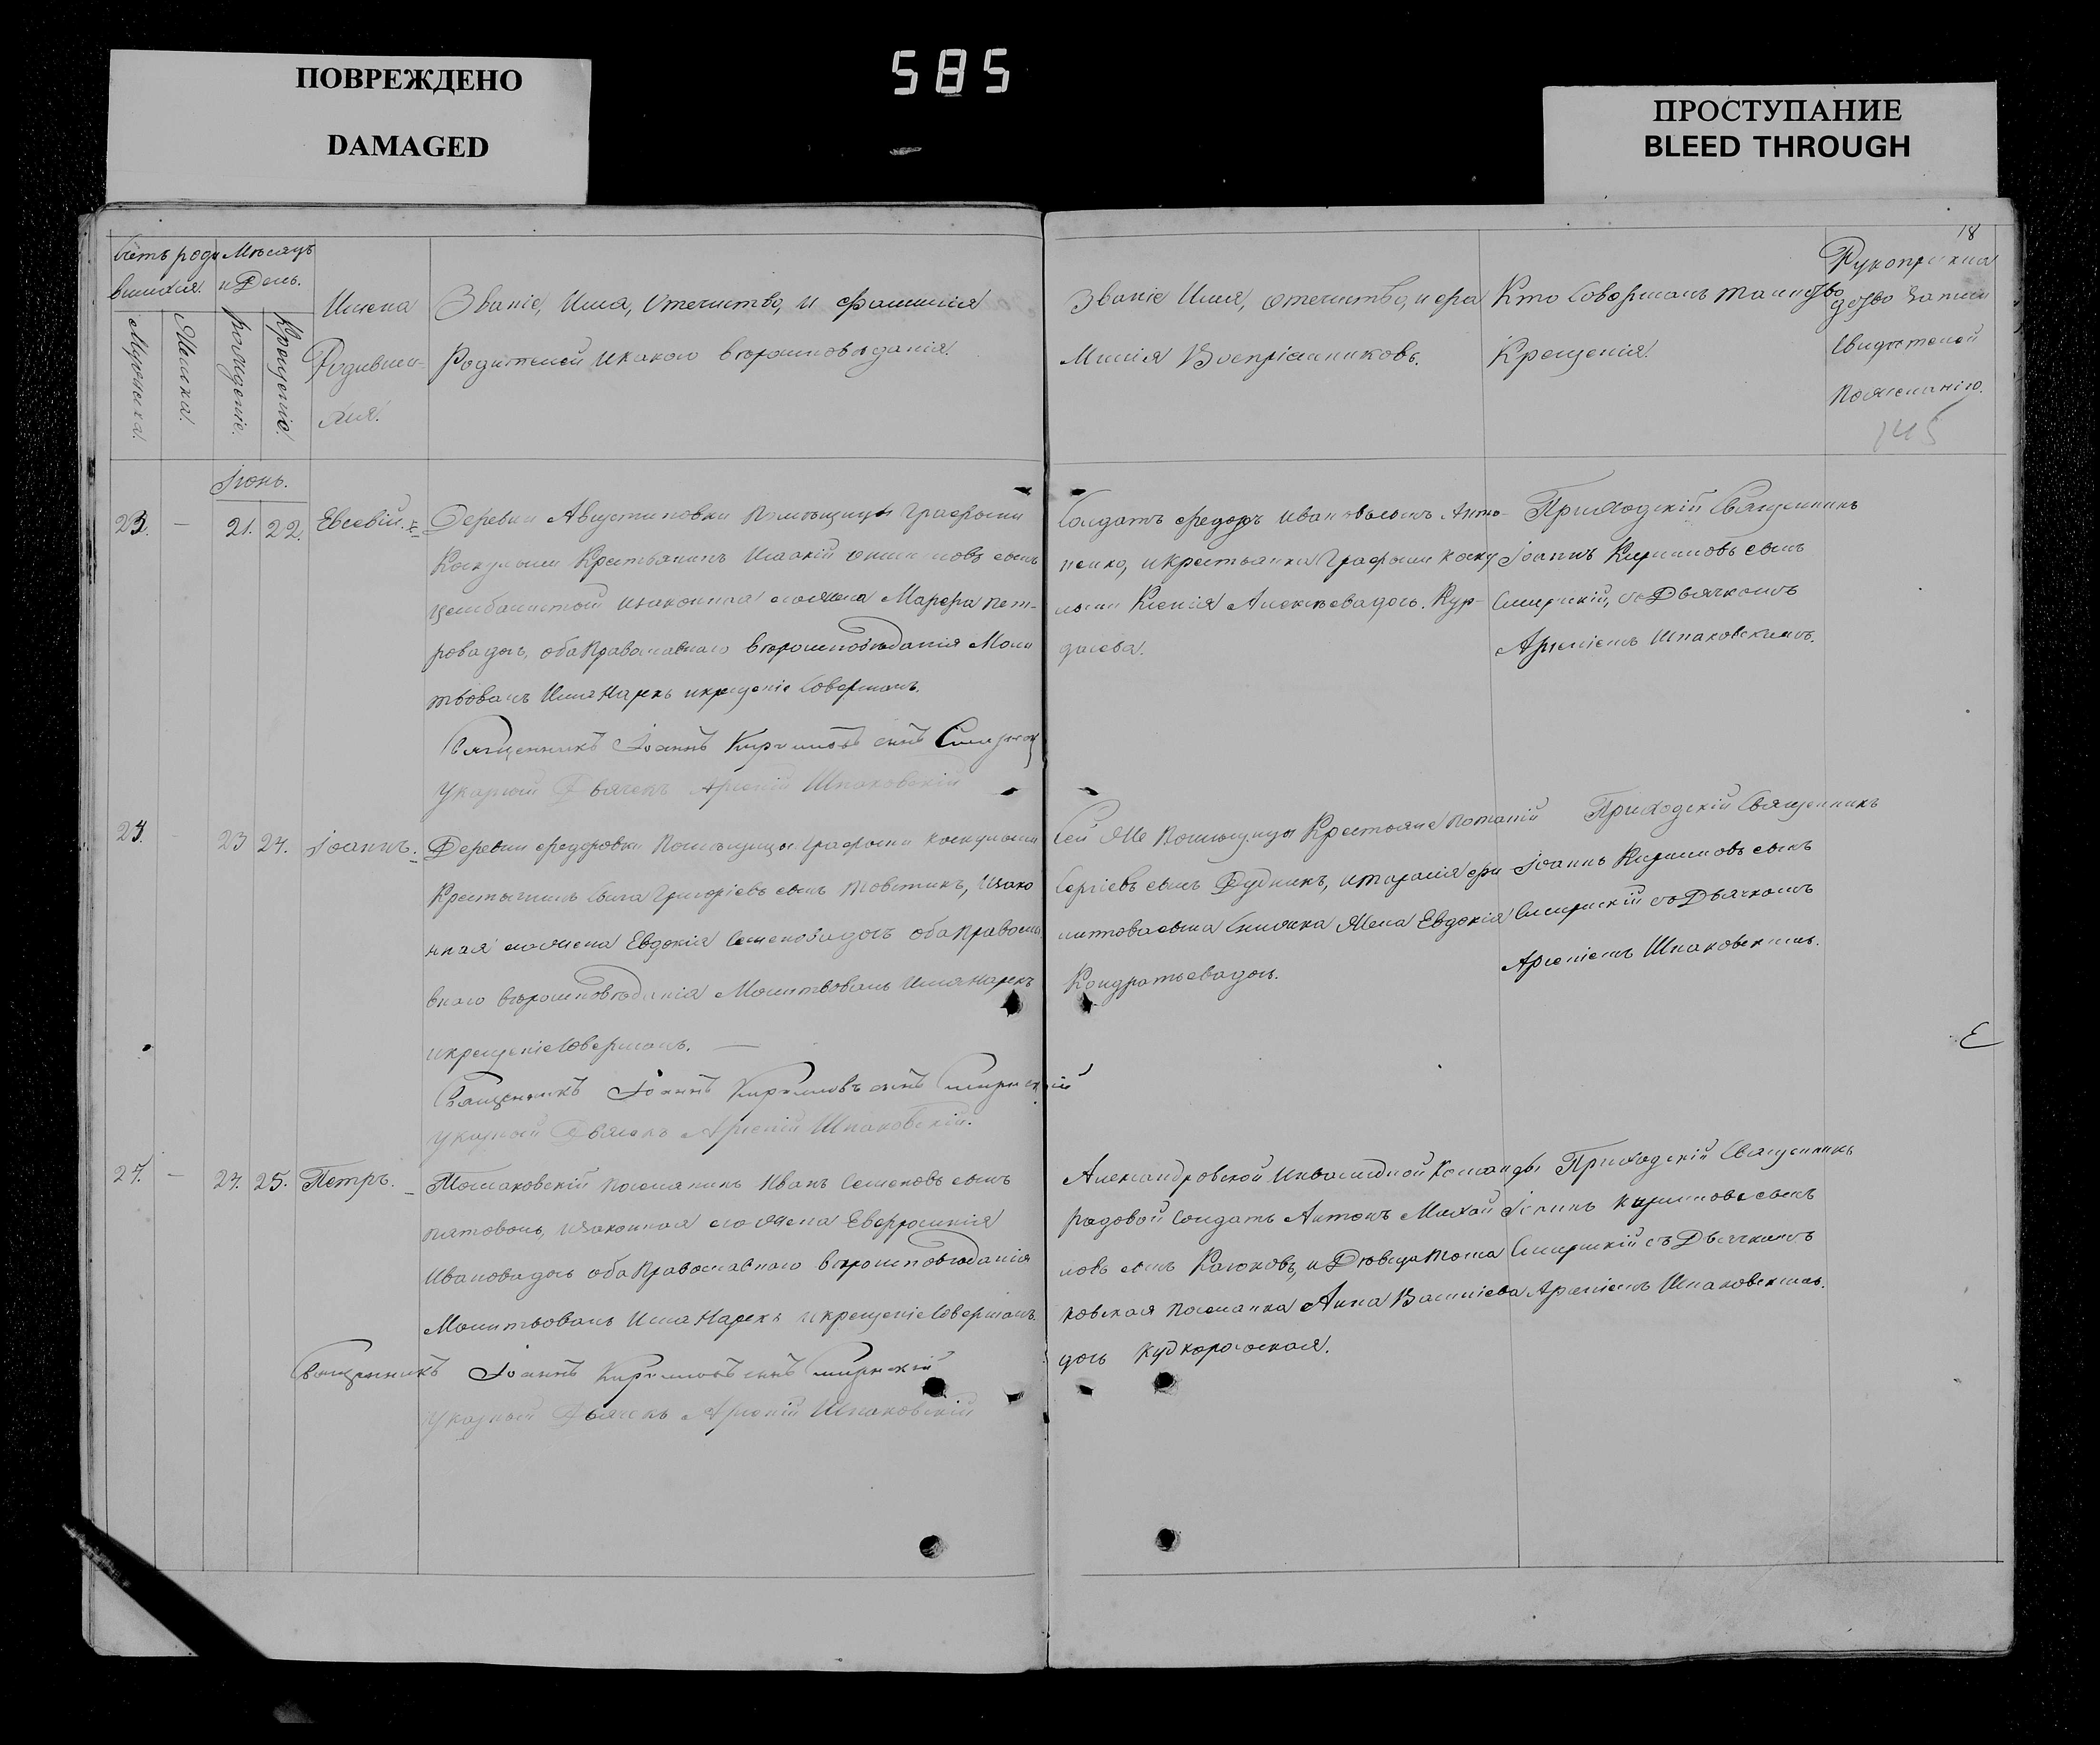 ПОВРЕЖДЕНО
DAMAGED
585
ПРОСТУПАНИЕ
BLEED THROUGH
18
Счетъ роди
вшихся.
Мѣсяцъ
и День.
Мужеска.
Женска.
Рожденіе.
Крещеніе.
Имена
Родивши-
хся.
Званіе, Имя, Отечитво, и фамилія
Родителей и какого вѣроисповѣданія.
Званіе Имя, отечитво, и фа
милія Воспріемниковъ.
Кто Совершалъ таинство
Крещенія.
Рукоприкла
дство записи
Свидѣтелей
по желанію.
145
Іюнь.
23. — 21. 22. Евсевій.
Деревни Августиновки помѣщицы Графини
Крестьянинъ сынъ
и законная его жена Марфа Пет-
рова дочь, оба Православнаго вѣроисповѣданія Моли
твовалъ Имя Нарекъ и крещеніе Совершалъ.
Священникъ Іоаннъ Кириловъ сынъ
Указный Дьячекъ Арсеній Шпаковскій
Солдатъ Федоръ Ивановъ сынъ Анто-
ненко, и крестьянка Графини
Ксенія Алексѣева дочь. Кур-
Приходскій Священникъ
Іоаннъ Кириловъ сынъ
съ Дьячкомъ
Арсеніемъ Шпаковскимъ.
24. — 23 24. Іоаннъ.
Деревни Федоровки Помѣщицы Графини
Крестьянинъ Сава Григоріевъ сынъ Товстикъ, и зако
нная его жена Евдокія Семенова дочь оба Правосла
внаго вѣроисповѣданія Молитвовалъ Имя нарекъ
и крещеніе Совершалъ. —
Священникъ Іоаннъ Кириловъ сынъ
Указный Дьячекъ Арсеній Шпаковскій.
Сей же Помѣщицы Крестьяне Потапій
Сергіевъ сынъ Дудникъ, и Герасія Фи
липпова сына жена Евдокія
Кондратьева дочь.
Приходскій Священникъ
Іоаннъ Кириловъ сынъ
съ Дьячкомъ
Арсеніемъ Шпаковскимъ.
25. — 24. 25. Петръ.
Томаковскій поселянинъ Иванъ Семеновъ сынъ
и законная его жена Евфросинія
Иванова дочь оба Православнаго вѣроисповѣданія
Молитвовалъ Имя Нарекъ и крещеніе Совершалъ.
Священникъ Іоаннъ Кириловъ сынъ
Указный Дьячекъ Арсеній Шпаковскій
Александровской Инвалидной Команды
рядовой Солдатъ Антонъ Михай
ловъ сынъ Каюковъ, и Дѣвица Тома
ковская поселянка Анна Васильева
дочь
Приходскій Священникъ
Іоаннъ Кириловъ сынъ
съ Дьячкомъ
Арсеніемъ Шпаковскимъ.